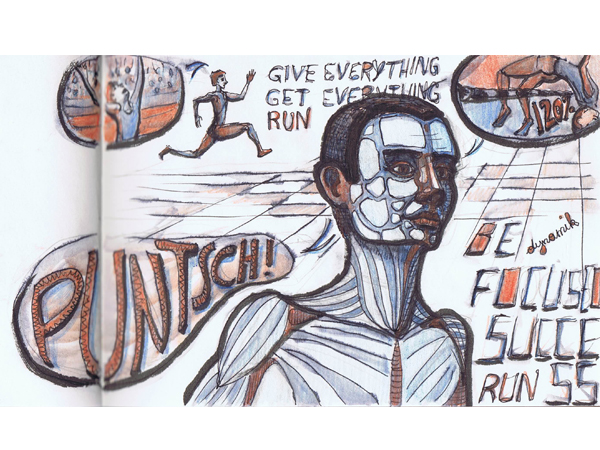 GIVE EVERYTHING
GET EVERYTHING
RUN
120%
PUNTSCH!
dynamik
BE
FOCUSD
SUCCE
RUN SS